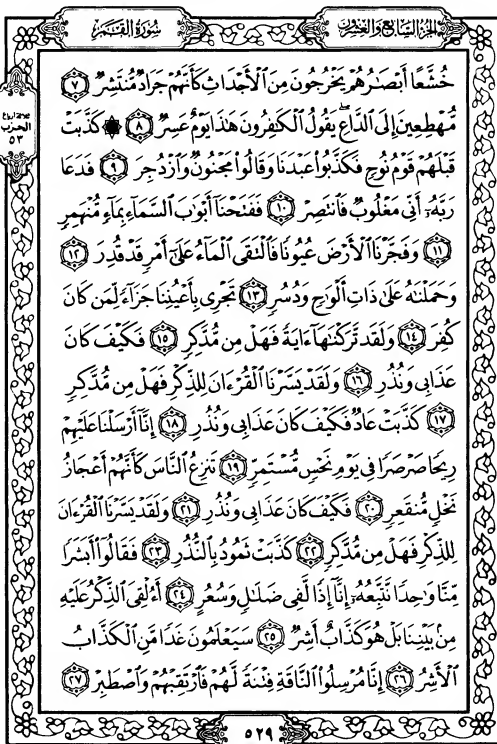 الجزء السابع والعشرون
سورة القمر
ثلاثة أرباع
الحزب
٥٣
خُشَّعًا أَبْصَٰرُهُمْ يَخْرُجُونَ مِنَ ٱلْأَجْدَاثِ كَأَنَّهُمْ جَرَادٌ مُّنتَشِرٌ ٧
مُّهْطِعِينَ إِلَى ٱلدَّاعِ يَقُولُ ٱلْكَٰفِرُونَ هَٰذَا يَوْمٌ عَسِرٌ ٨ ۞ كَذَّبَتْ
قَبْلَهُمْ قَوْمُ نُوحٍ فَكَذَّبُوا۟ عَبْدَنَا وَقَالُوا۟ مَجْنُونٌ وَٱزْدُجِرَ ٩ فَدَعَا
رَبَّهُۥٓ أَنِّى مَغْلُوبٌ فَٱنتَصِرْ ١٠ فَفَتَحْنَآ أَبْوَٰبَ ٱلسَّمَآءِ بِمَآءٍ مُّنْهَمِرٍ
١١ وَفَجَّرْنَا ٱلْأَرْضَ عُيُونًا فَٱلْتَقَى ٱلْمَآءُ عَلَىٰٓ أَمْرٍ قَدْ قُدِرَ ١٢
وَحَمَلْنَٰهُ عَلَىٰ ذَاتِ أَلْوَٰحٍ وَدُسُرٍ ١٣ تَجْرِى بِأَعْيُنِنَا جَزَآءً لِّمَن كَانَ
كُفِرَ ١٤ وَلَقَد تَّرَكْنَٰهَآ ءَايَةً فَهَلْ مِن مُّدَّكِرٍ ١٥ فَكَيْفَ كَانَ
عَذَابِى وَنُذُرِ ١٦ وَلَقَدْ يَسَّرْنَا ٱلْقُرْءَانَ لِلذِّكْرِ فَهَلْ مِن مُّدَّكِرٍ
١٧ كَذَّبَتْ عَادٌ فَكَيْفَ كَانَ عَذَابِى وَنُذُرِ ١٨ إِنَّآ أَرْسَلْنَا عَلَيْهِمْ
رِيحًا صَرْصَرًا فِى يَوْمِ نَحْسٍ مُّسْتَمِرٍّ ١٩ تَنزِعُ ٱلنَّاسَ كَأَنَّهُمْ أَعْجَازُ
نَخْلٍ مُّنقَعِرٍ ٢٠ فَكَيْفَ كَانَ عَذَابِى وَنُذُرِ ٢١ وَلَقَدْ يَسَّرْنَا ٱلْقُرْءَانَ
لِلذِّكْرِ فَهَلْ مِن مُّدَّكِرٍ ٢٢ كَذَّبَتْ ثَمُودُ بِٱلنُّذُرِ ٢٣ فَقَالُوٓا۟ أَبَشَرًا
مِّنَّا وَٰحِدًا نَّتَّبِعُهُۥٓ إِنَّآ إِذًا لَّفِى ضَلَٰلٍ وَسُعُرٍ ٢٤ أَءُلْقِىَ ٱلذِّكْرُ عَلَيْهِ
مِنۢ بَيْنِنَا بَلْ هُوَ كَذَّابٌ أَشِرٌ ٢٥ سَيَعْلَمُونَ غَدًا مَّنِ ٱلْكَذَّابُ
ٱلْأَشِرُ ٢٦ إِنَّا مُرْسِلُوا۟ ٱلنَّاقَةِ فِتْنَةً لَّهُمْ فَٱرْتَقِبْهُمْ وَٱصْطَبِرْ ٢٧
٥٢٩